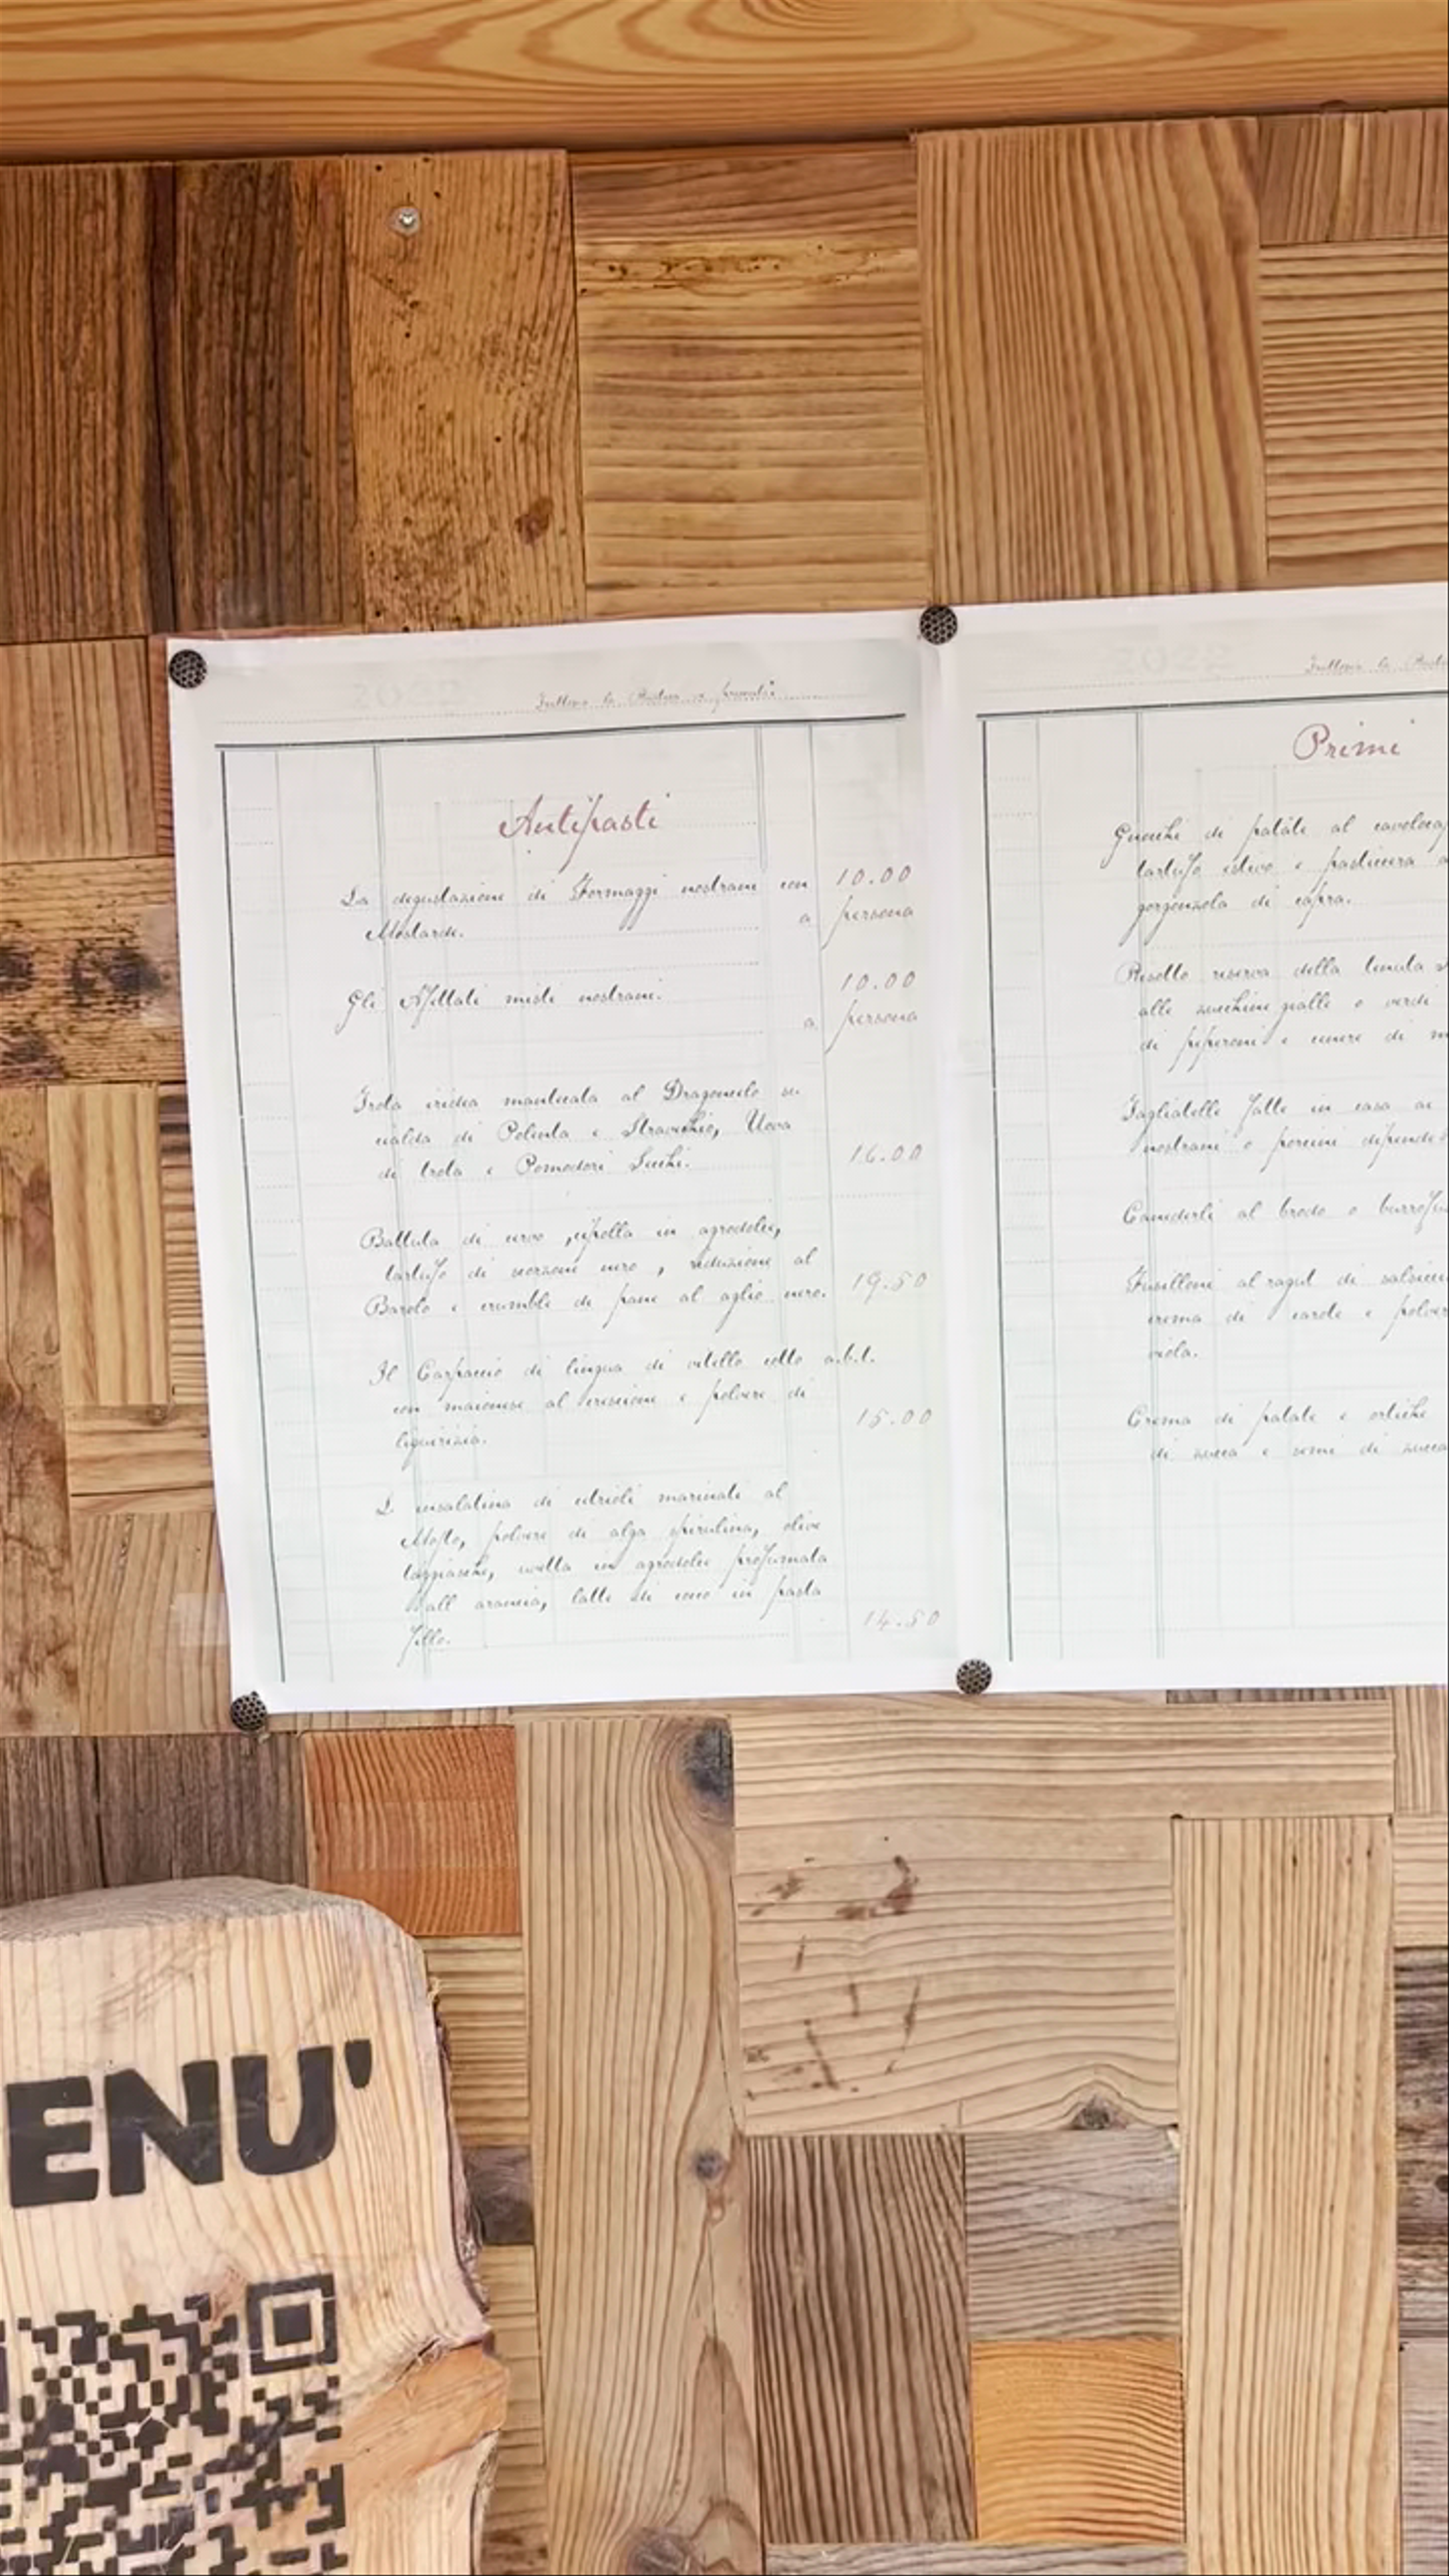 2022
Antipasti
La degustazione di Formaggi nostrani con
Mostarde.
10.00
a persona
Gli Affettati misti nostrani.
10.00
a persona
Trota iridea mantecata al Dragoncello su
cialda di Polenta e Stracchino, Uova
di trota e Pomodori Secchi.
16.00
Battuta di cervo, cipolla in agrodolce,
tartufo di scorzone nero, riduzione al
Barolo e crumble di pane al aglio nero.
19.50
Il Carpaccio di lingua di vitello cotto a.b.t.
con maionese al crescione e polvere di
liquirizia.
15.00
L insalatina di cetrioli marinati al
Mojto, polvere di alga spirulina, olive
taggiasche, uvetta in agrodolce profumata
all arancia, latte di cocco in pasta
fillo.
14.50
2022
Primi
Gnocchi di patate al
tartufo estivo e pasticcera
gorgonzola di capra.
Risotto riserva della tenuta
alle zucchine gialle e verdi
di peperoni e cenere di
Tagliatelle fatte in casa ai
nostrani o porcini
Canederli al brodo o
Fusilloni al ragut di
crema di carote e
viola.
Crema di patate e ortiche
di zucca e semi di zucca
ENU'